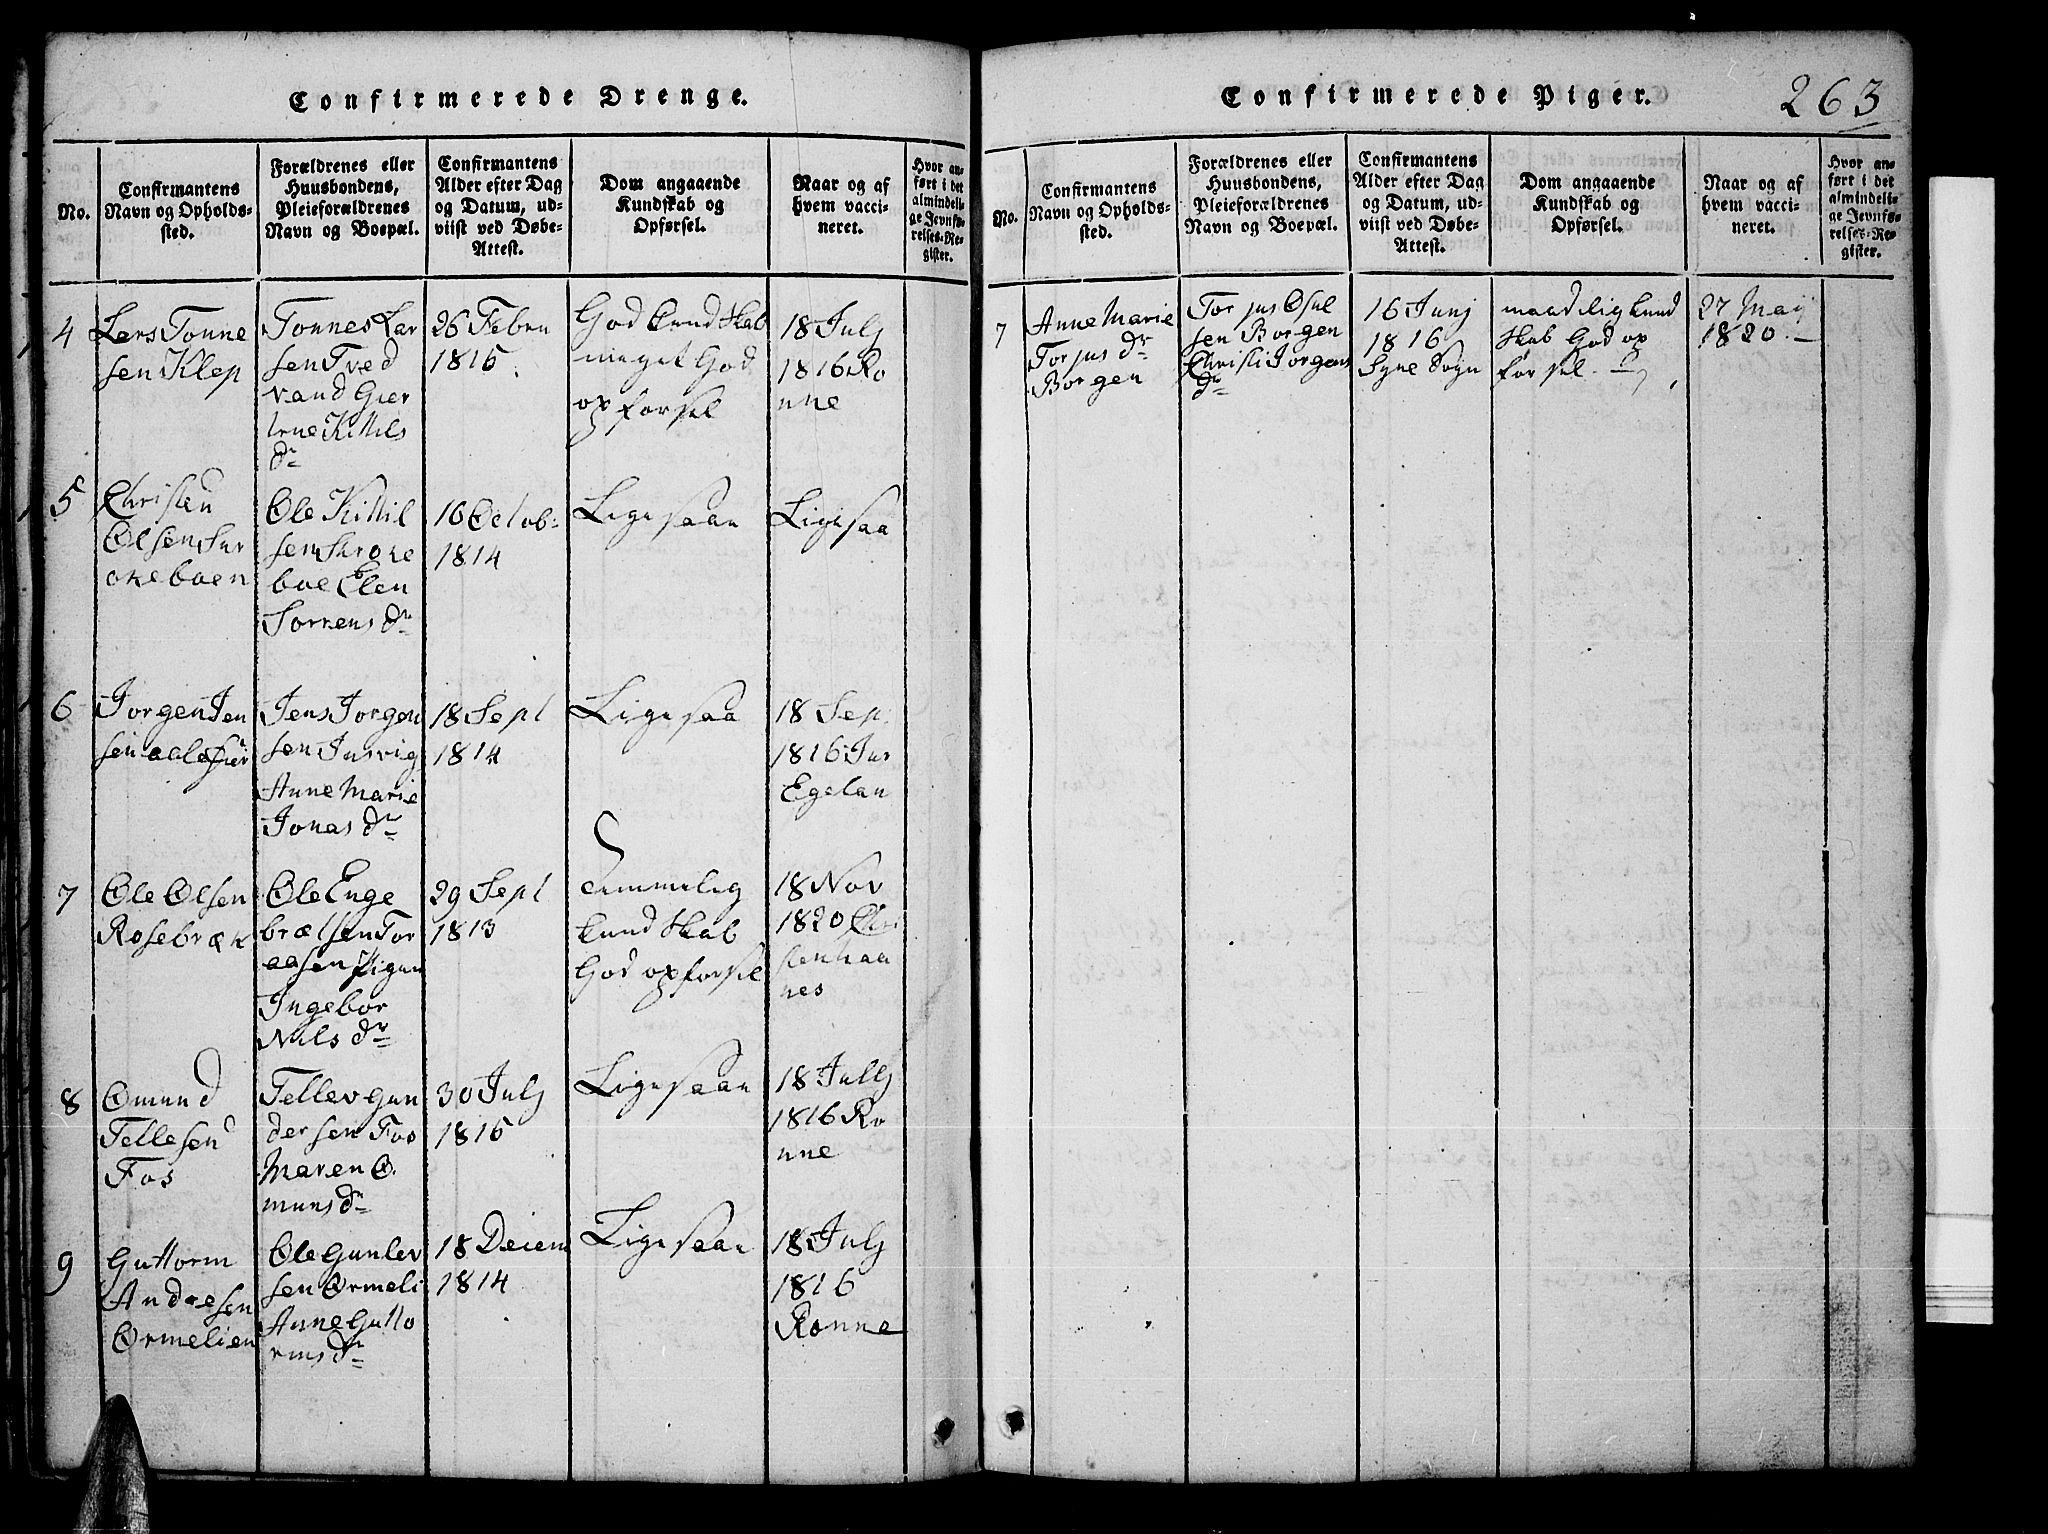 Confirmerede Drenge.
No.
Confirmantens
Navn og Opholds-
sted.
Forældrenes eller
Huusbondens,
Pleieforældrenes
Navn og Boepæl.
Confirmantens
Alder efter Dag
og Datum, ud-
viist ved Døbe-
Attest.
Dom angaaende
Kundskab og
Opførsel.
Naar og af
hvem vacci-
neret.
Hvor an-
ført i det
almindeli-
ge Jevnfø-
relses-Re-
gister.
4
Lars Tonne
sen Klep
Tonnes Lar
sen Tved
vand Gier
true Kittils
dr
26 Febru
1815
God Kundskab
meget God
opforsel
18 Julj
1816 Ro
nne
5
Christen
Olsen
oneboen
Ole Kittil
sen
boe Elen
Sorrens dr
16 Octob:
1814
Ligesaa
Ligesaa
6
Jorgen Jen
sen
Jens Jorgen
sen
Anne Marie
Jonas dr
18 Sept
1814
Ligesaa
18 Sep.
1816
Egelan
7
Ole Olsen
Rosebræk
Ole Enge
brætsen Tor
aasen Pigen
Ingebor
Nils dr
29 Sept
1813
Temmelig
Kundskab
God opforsel
18 Nov
1820
nes
8
Omund
Tellesen
Fos
Tellev Gun
dersen Fos
Maren O
muns dr
30 Julj
1815
Ligesaa
18 Julj
1816 Ro
nne
9
Guttorm
Andresen
Ormelien
Ole Gunlev
sen Ormeli
Anne Gutto
rms dr
18 Decem
1814
Ligesaa
18 Julj
1816
Ronne
Confirmerede Piger.
263
No.
Confirmantens
Navn og Opholds-
sted.
Forældrenes eller
Huusbondens,
Pleieforældrenes
Navn og Boepæl.
Confirmantens
Alder efter Dag
og Datum, ud-
viist ved Døbe-
Attest.
Dom angaaende
Kundskab og
Opførsel.
Naar og af
hvem vacci-
neret.
Hvor an-
ført i det
almindeli-
ge Jevnfø-
relses-Re-
gister.
7
Anne Marie
Torjus dr
Borgen
Torjus Osul
sen Borgen
Christi Jorgens
dr
16 Junj
1816
Sogn
maadelig Kund
skab God op
forsel
27 Maij
1820